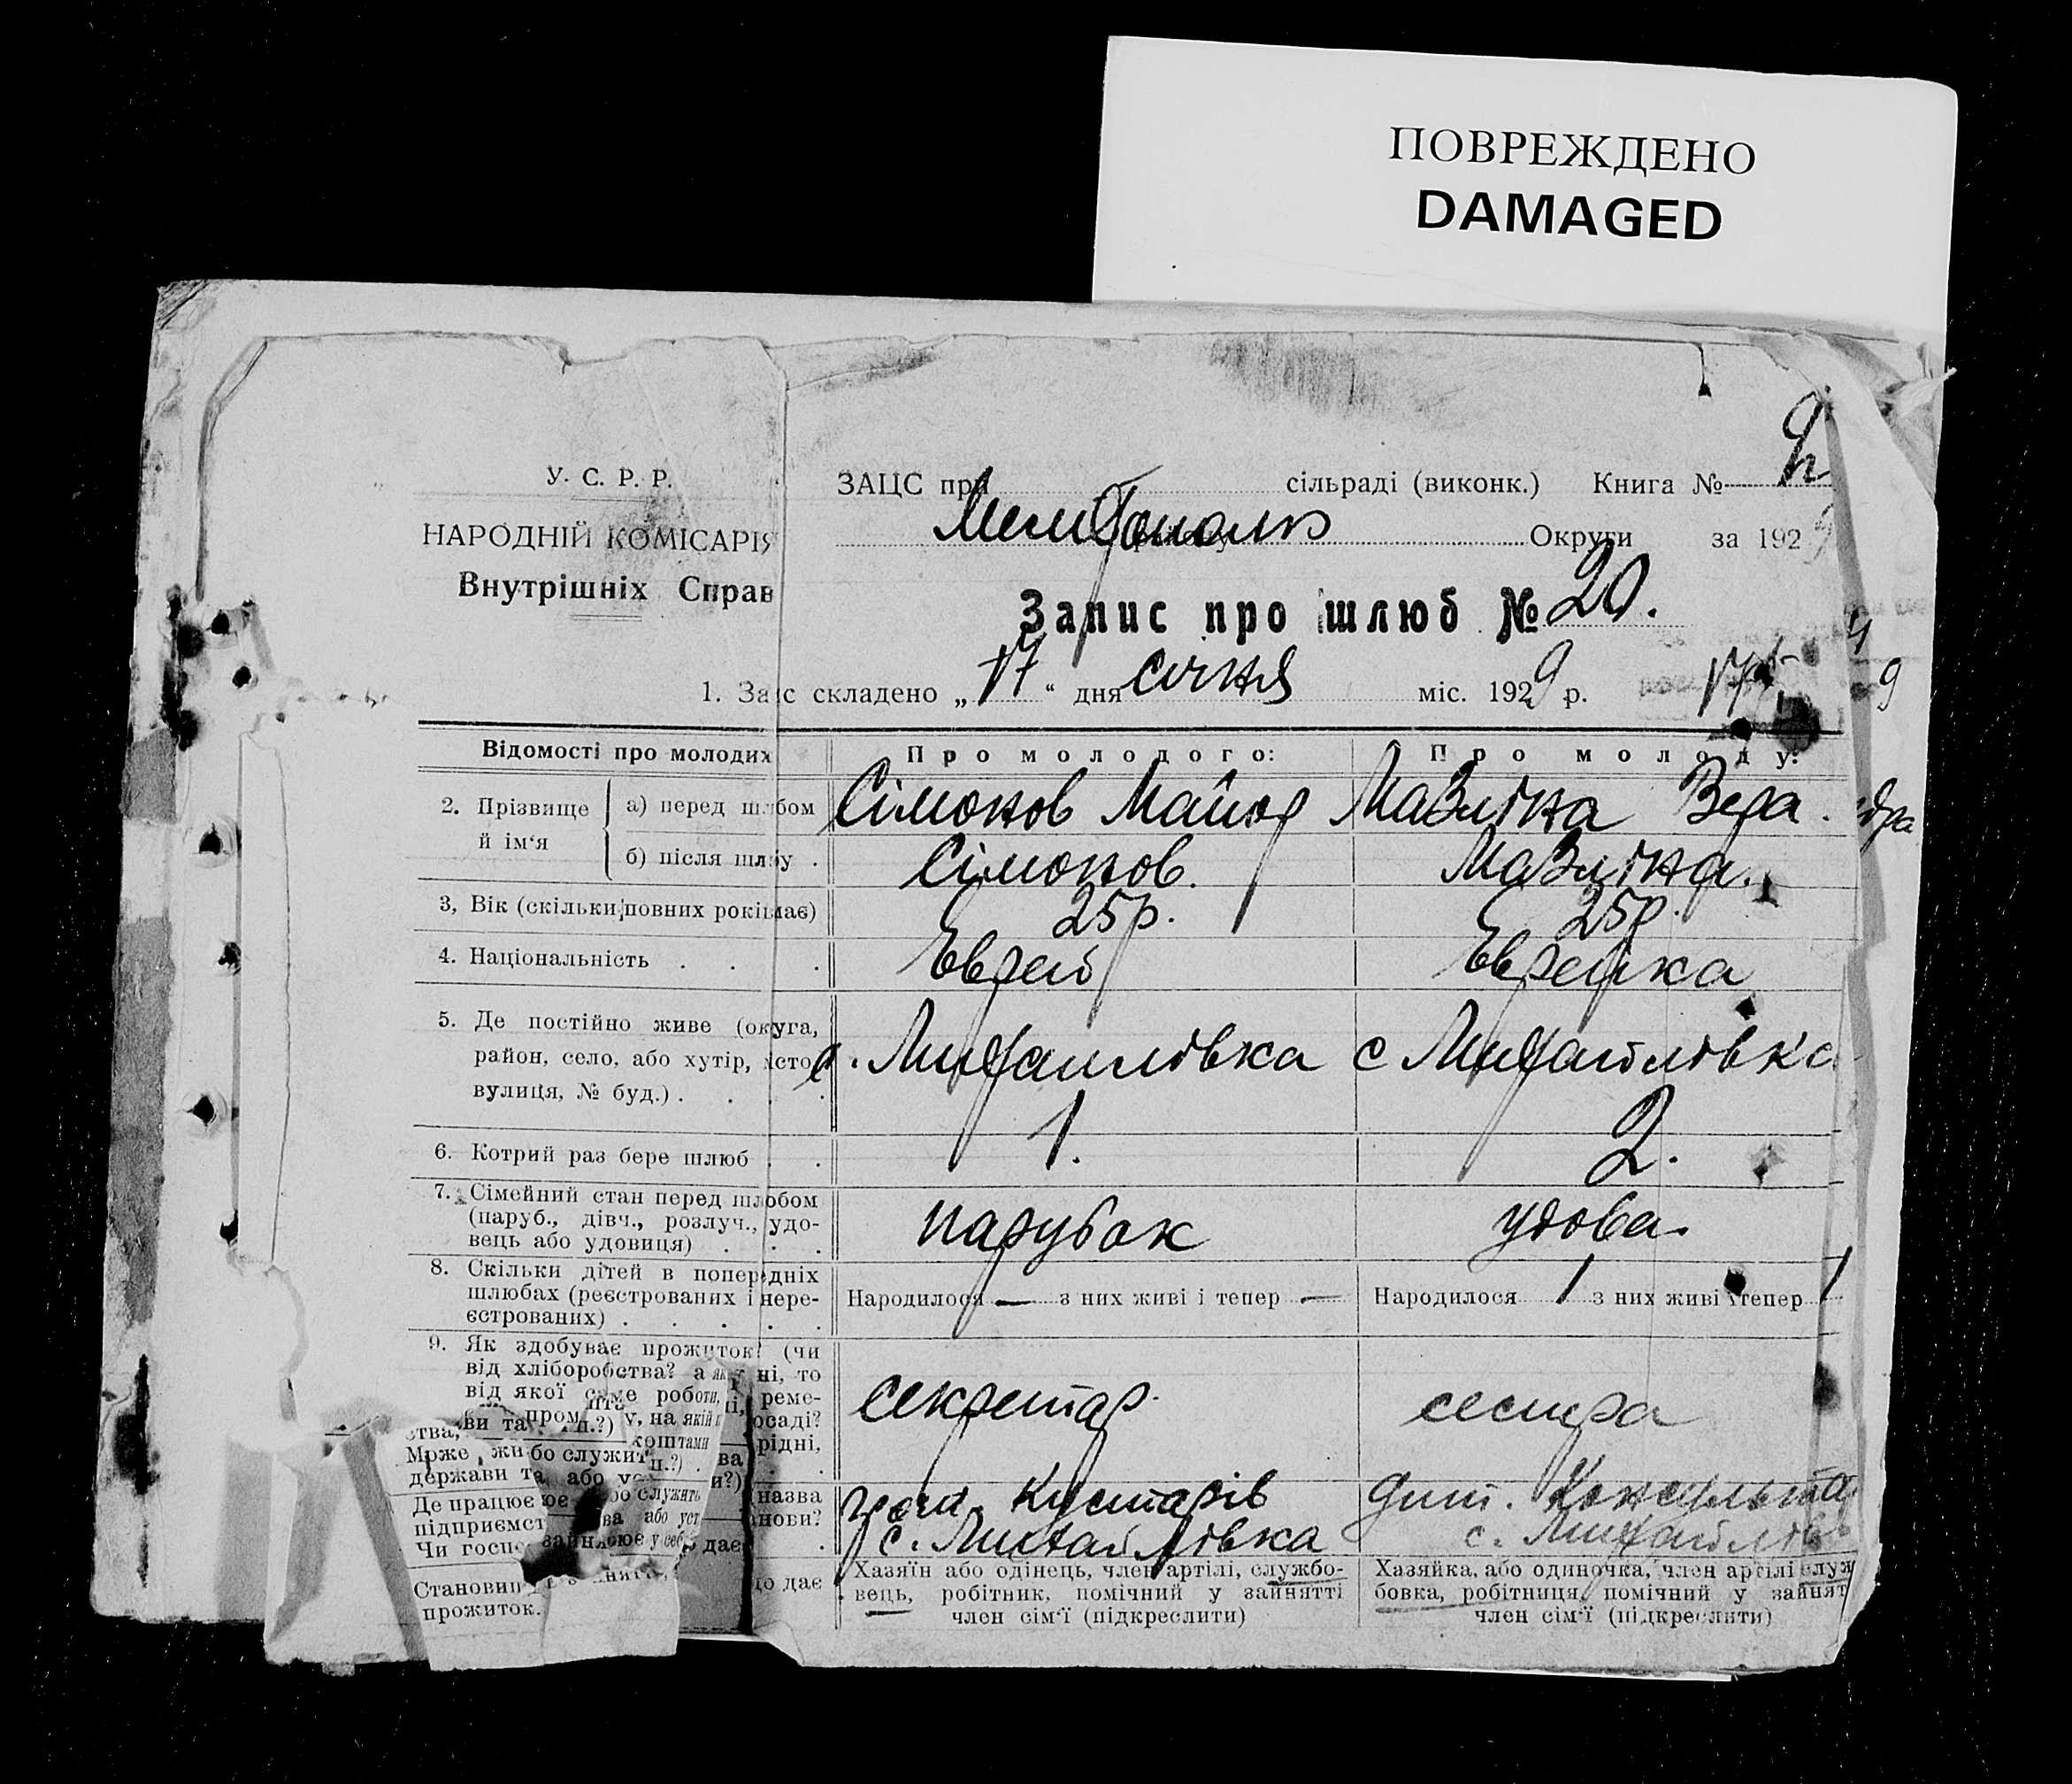 ПОВРЕЖДЕНО
DAMAGED
У. С. Р. Р.
НАРОДНІЙ КОМІСАРІЯ
Внутрішніх Справ
ЗАЦС при сільраді (виконк.) Книга №
Округи за 192
Запис про шлюб № 20.
1. За с складено „17“ дня січня міс. 1929 р.
Відомості про молодих
Про молодого:
Про молоду:
2. Прізвище й ім‘я
а) перед шлюбом
Сімонов Майор
Мазліна Вера
б) після шлюбу .
Сімонов.
Мазліна.
3, Вік (скільки повних рокі має)
25р.
25р.
4. Національність . . .
Еврей
Еврейка
5. Де постійно живе (округа,
район, село, або хутір, істо
вулиця, № буд.) . . .
с. Михайлівка
с Михайлівка
6. Котрий раз бере шлюб . .
1.
2.
7. Сімейний стан перед шлюбом
(паруб., дівч., розлуч., удо-
вець або удовиця) . . .
парубок
удова.
8. Скільки дітей в попередніх
шлюбах (реєстрованих і нере-
єстрованих) . . . . .
Народилося — з них живі і тепер —
Народилося 1 з них живі і тепер 1
9. Як здобуває прожиток? (чи
від хліборобства? а як ні, то
від якої саме роботи, реме-
секретар.
сестра
Кустарів
с. Михайлівка
дит. Консульта
с. Михайлів
Де працює
підприємст
Чи госпо
Становищ
прожиток.
Хазяїн або одінець, член артілі, службо-
вець, робітник, помічний у зайнятті
член сім‘ї (підкреслити)
Хазяйка, або одиночка, член артілі служ
бовка, робітниця, помічний у зайнят
член сім‘ї (підкреслити)